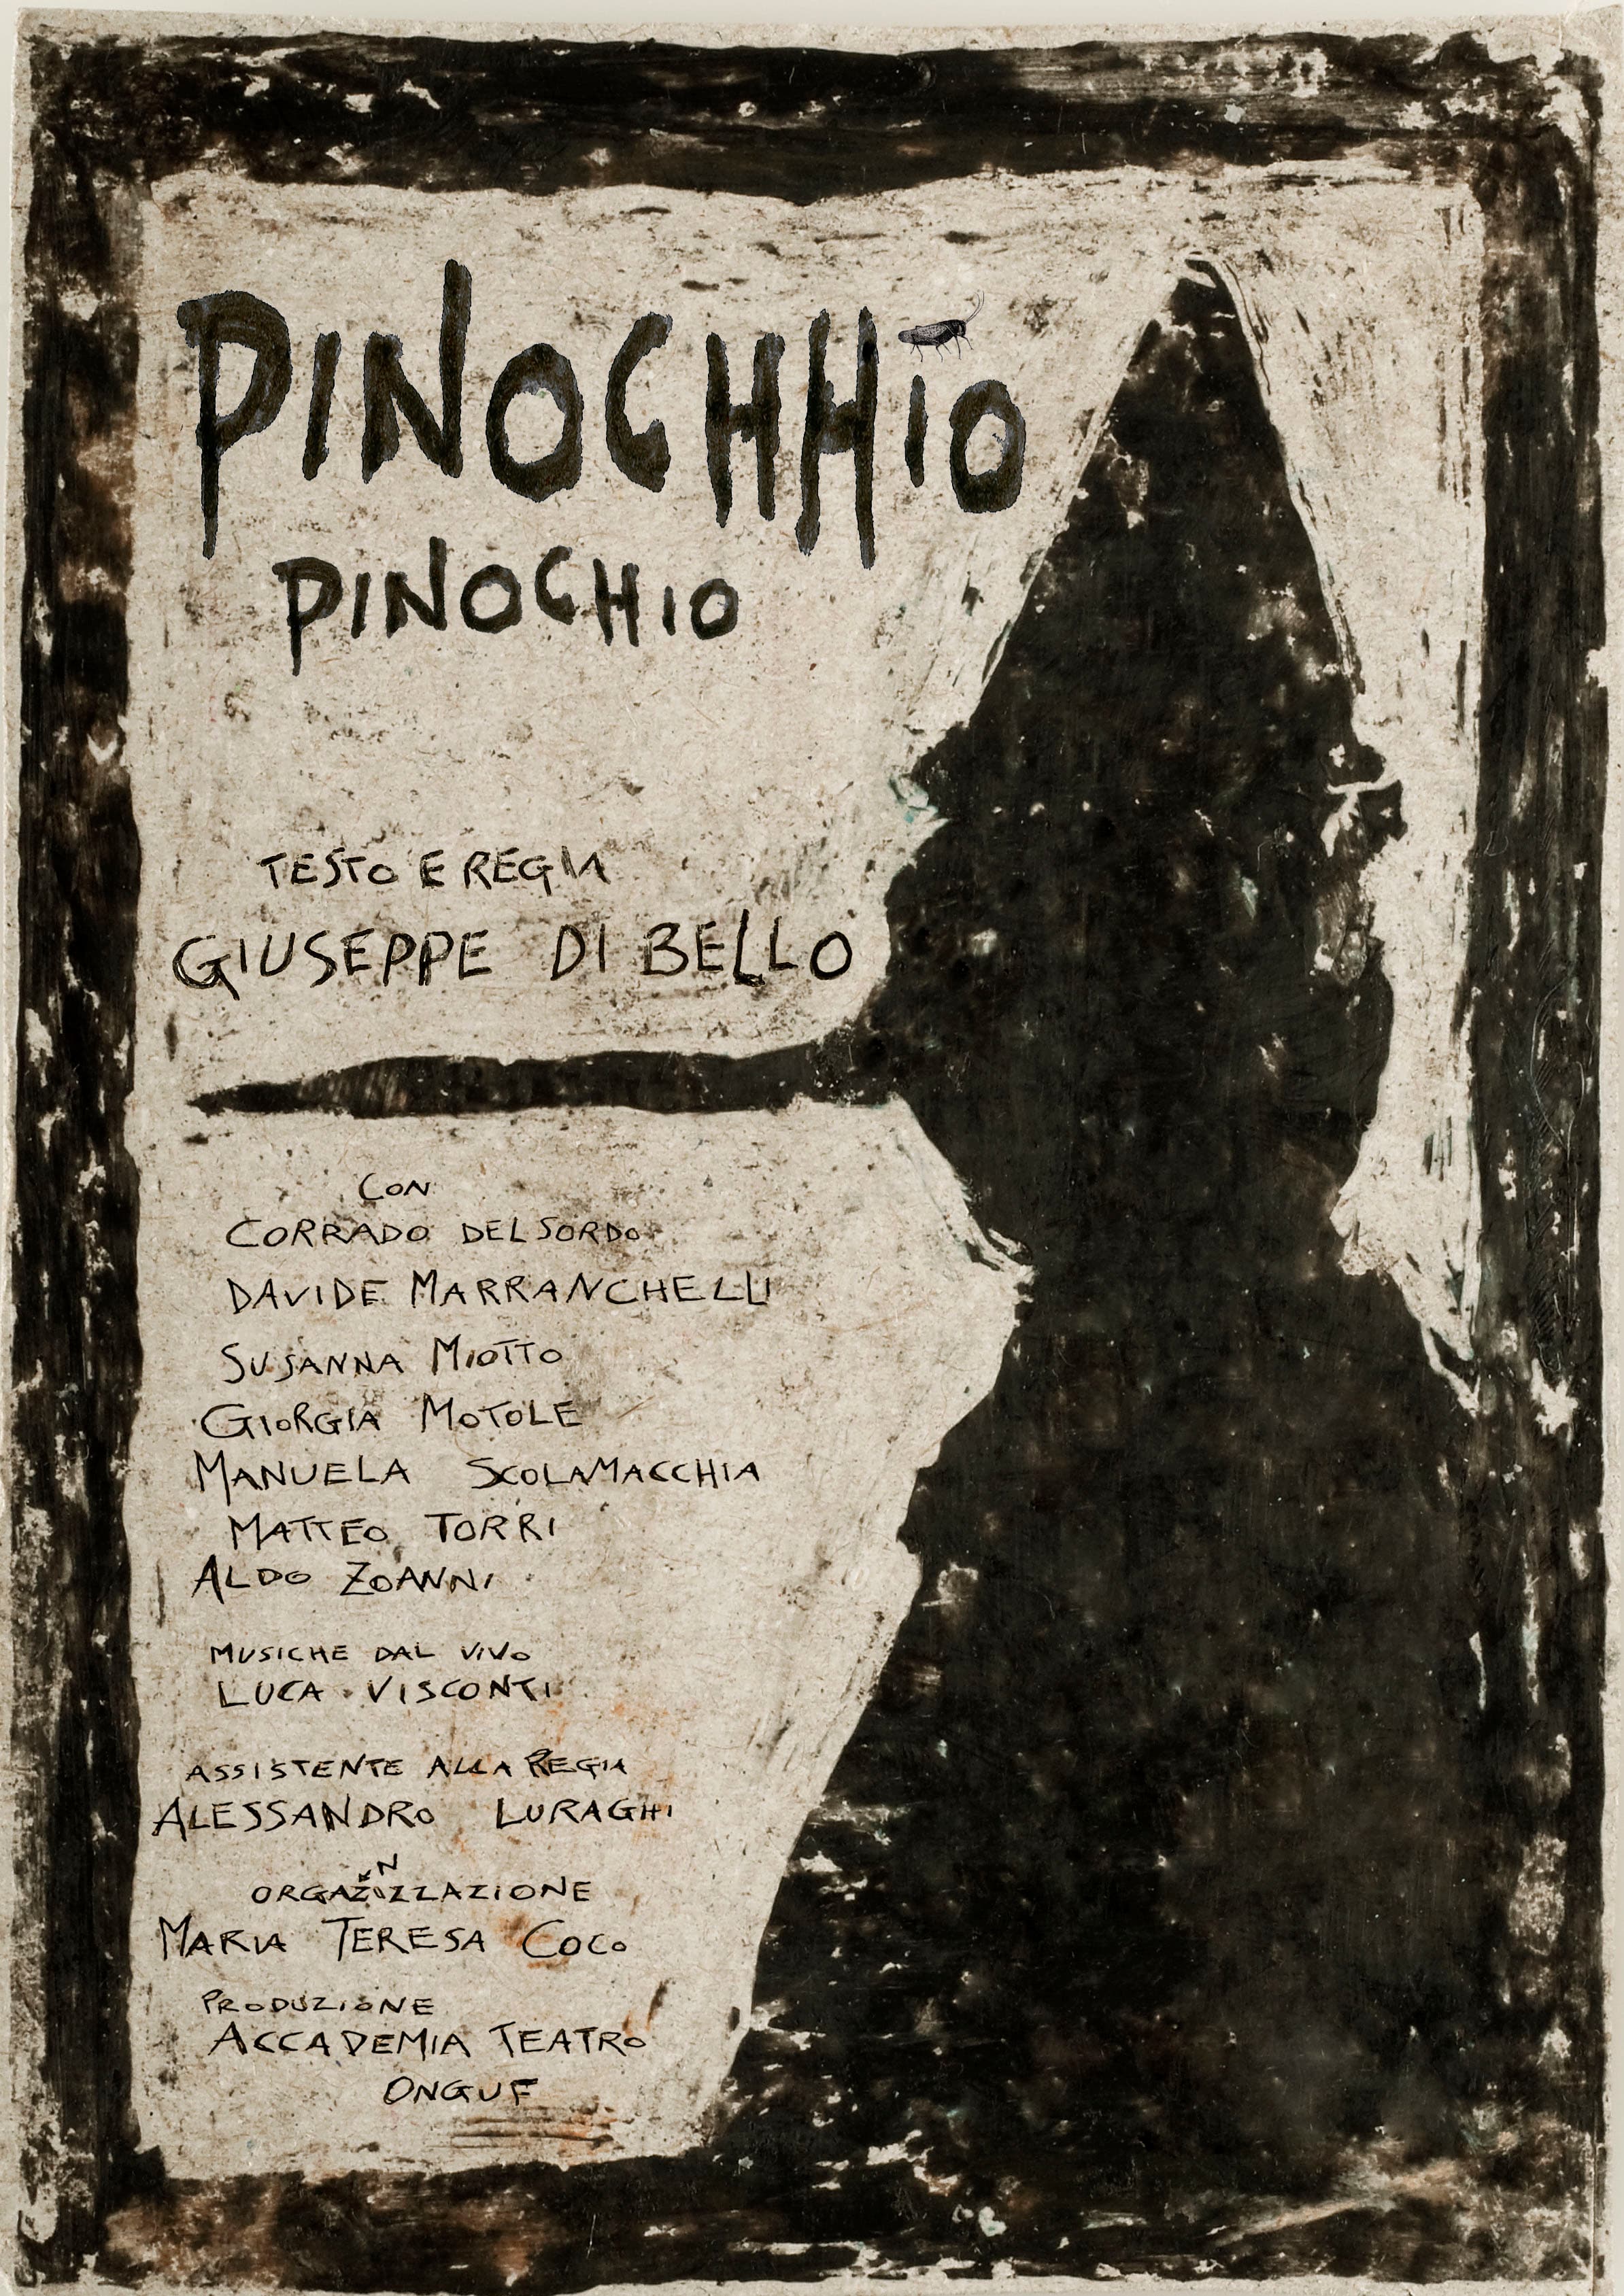 PINOCHHIO
PINOCHIO
TESTO E REGIA
GIUSEPPE DI BELLO
CON
CORRADO DEL SORDO
DAVIDE MARRANCHELLI
SUSANNA MIOTTO
GIORGIA MOTOLE
MANUELA SCOLAMACCHIA
MATTEO TORRI
ALDO ZOANNI
MUSICHE DAL VIVO
LUCA VISCONTI
ASSISTENTE ALLA REGIA
ALESSANDRO LURAGHI
ORGANIZZAZIONE
MARIA TERESA COCO
PRODUZIONE
ACCADEMIA TEATRO
ONGUF